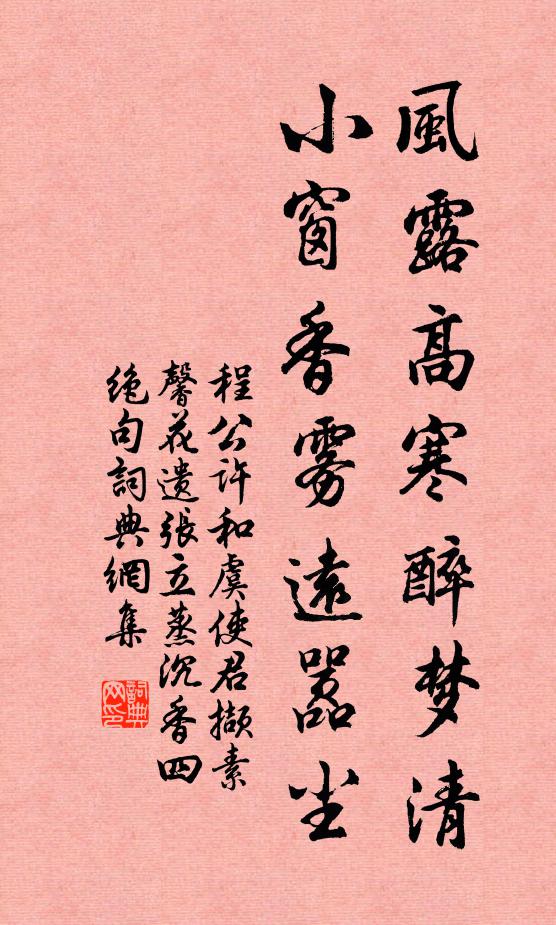 風露高寒醉梦清
小窗香雾遠嚣尘
程公许和虞使君撷素
馨花遗张立蒸沉香四
绝句詞典網集
詞典网印